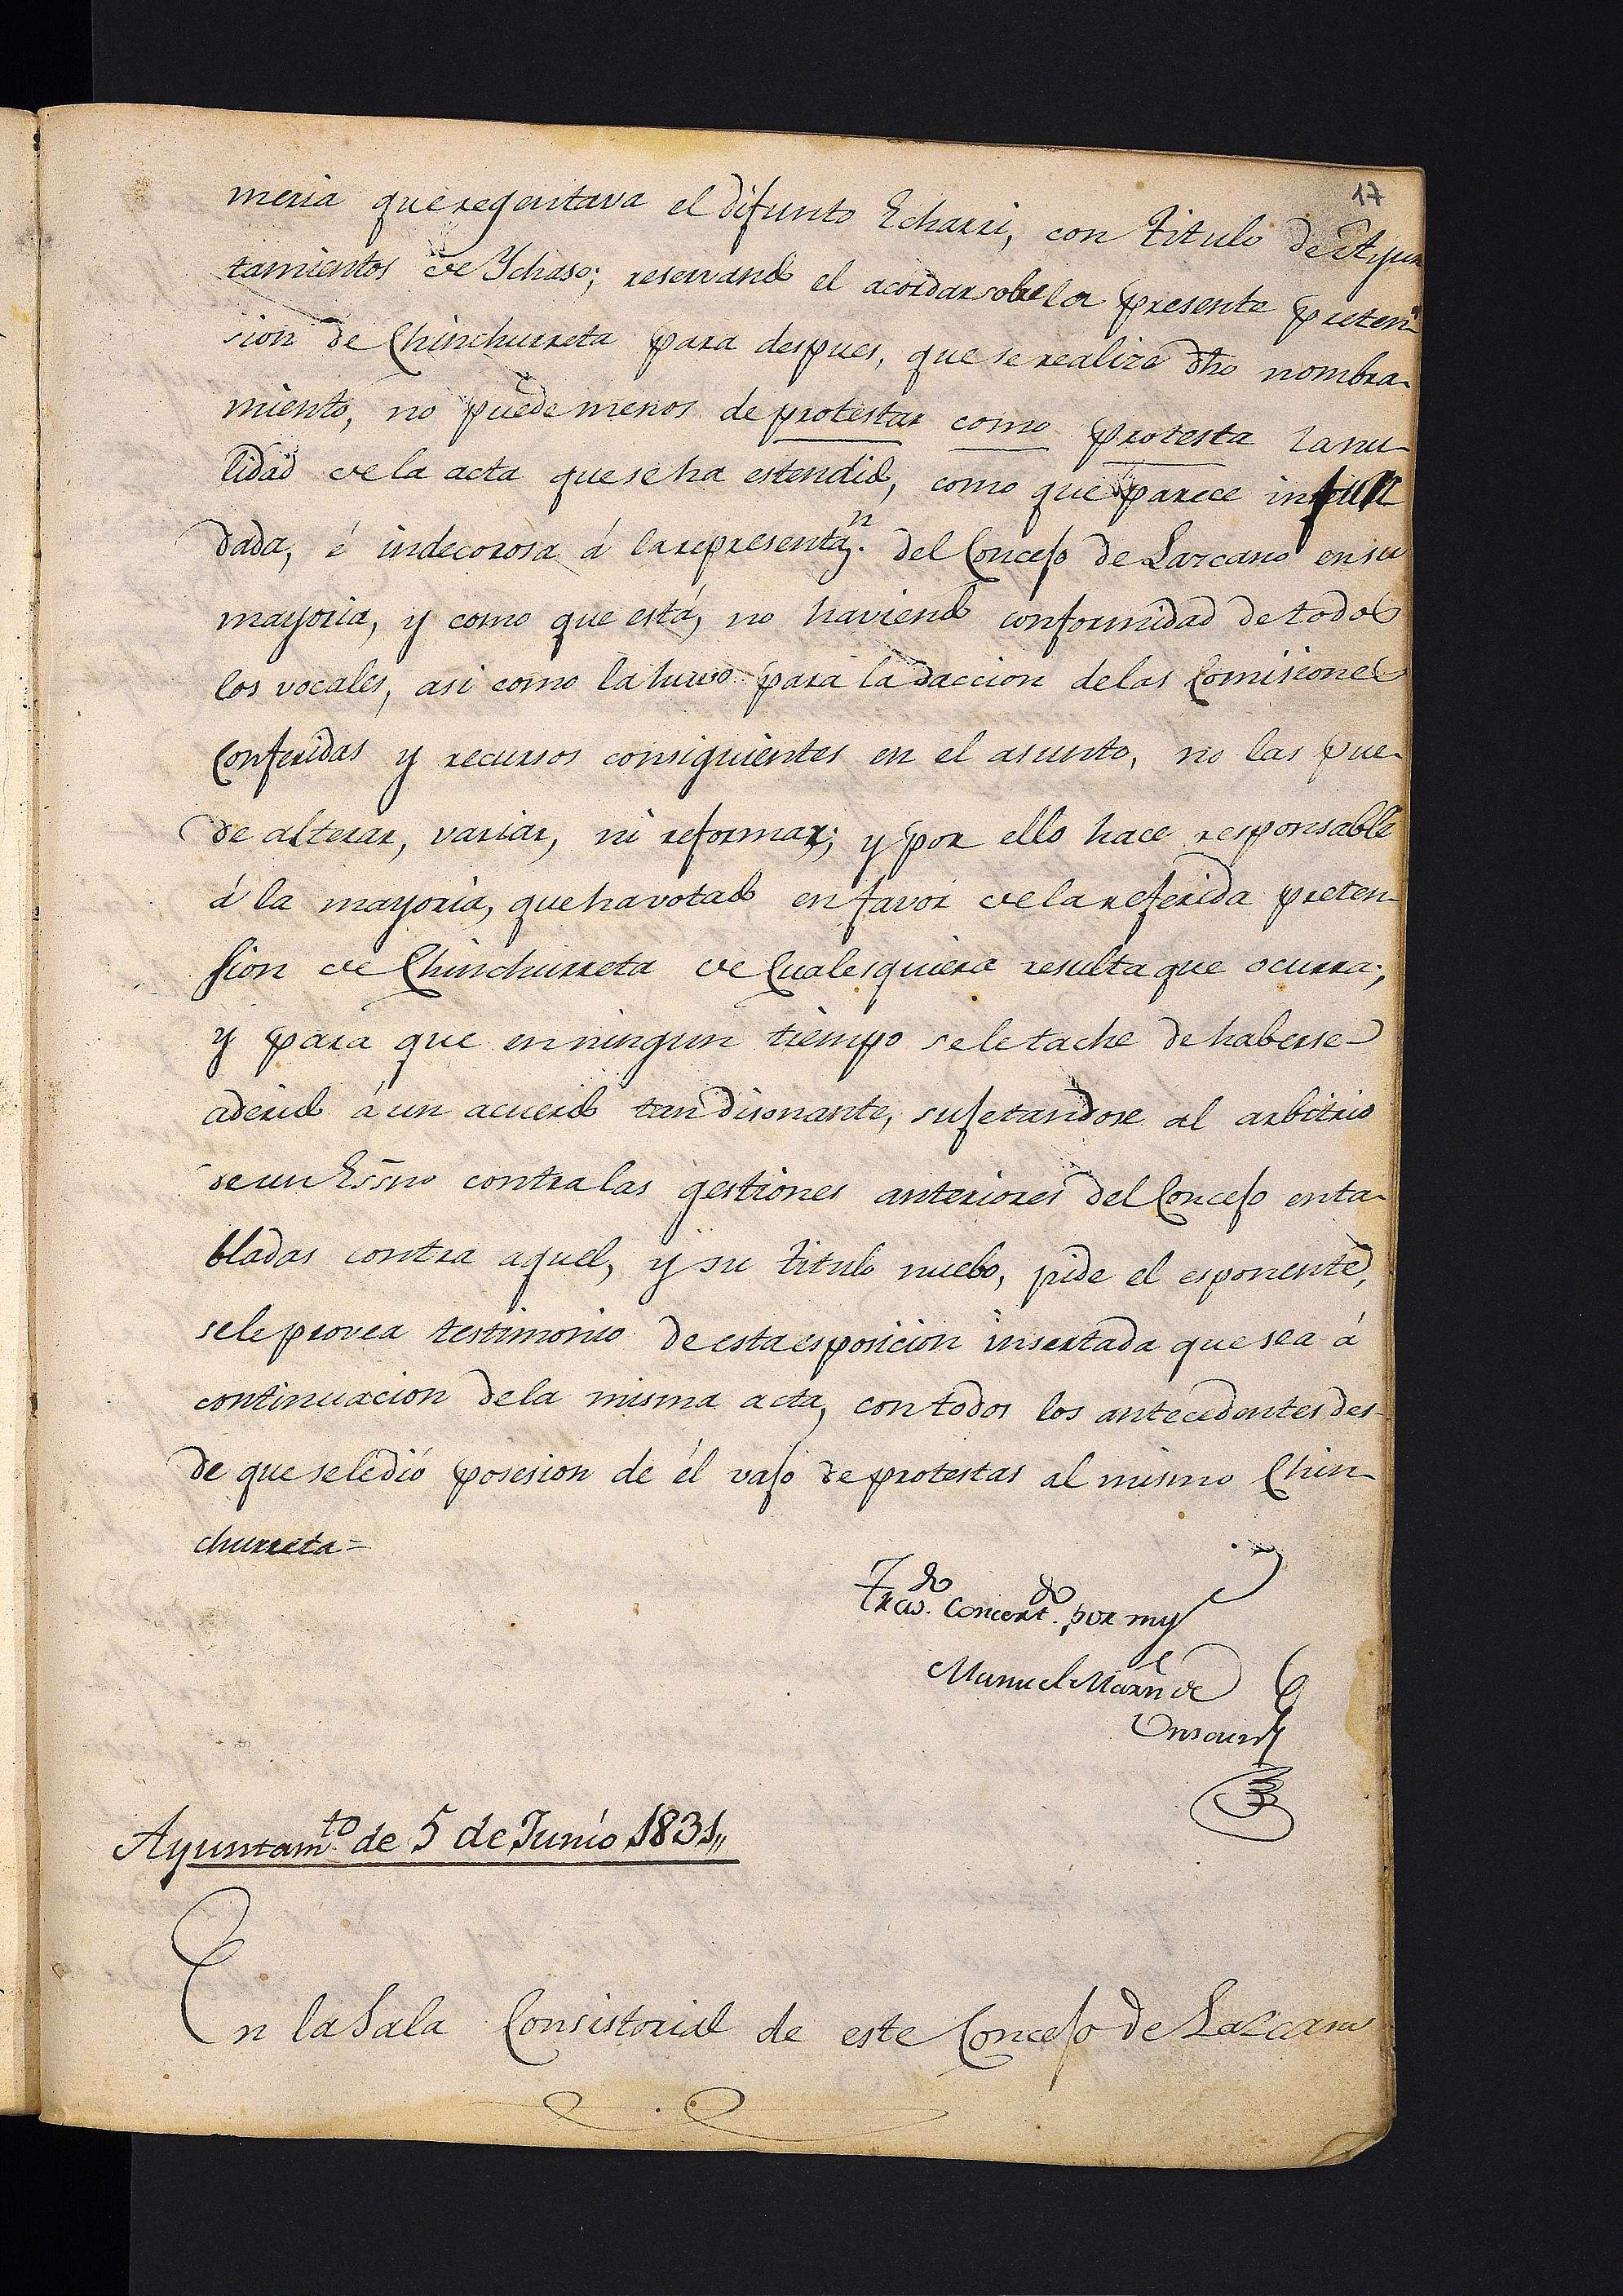 17
meria que regentava el difunto Echarri, con titulo de Ayun
tamientos de Ychaso; reservando el acordar sobre la presente preten-
sion de Chinchurreta para despues, que se realize dho nombra-
miento, no puede menos de protestar como protesta la nu-
lidad de la acta que se ha estendido, como que parece infun
dada, é indecorosa á la representaz.n del Concejo de Lazcano en su
mayoria, y como que está, no haviendo conformidad de todos
los vocales, asi como la huvo para la daccion de las Comisiones
Conferidas y recursos consiguientes en el asunto, no las pue-
de alterar, variar, ni reformar; y por ello hace responsable
á la mayoria, que ha votado en favor de la referida preten-
sion de Chinchurreta de Cualesquiera resulta que ocurra;
y para que en ningun tiempo se le tache de haberse
aderido á un acuerdo tan disonante, sujetandose al arbitrio
de un Essno contra las gestiones anteriores del Concejo enta-
bladas contra aquel, y su titulo nuebo, pide el esponente,
se le provea testimonio de esta esposicion insertada que sea á
continuacion de la misma acta, con todos los antecedentes des-
de que se le dió posesion de él vajo de protestas al mismo Chin-
churreta=
concert.do por my
Manuel Marn de
Ayuntam.to de 5 de Junio 1831,,
En la Sala Consistorial de este Concejo de Lazcano